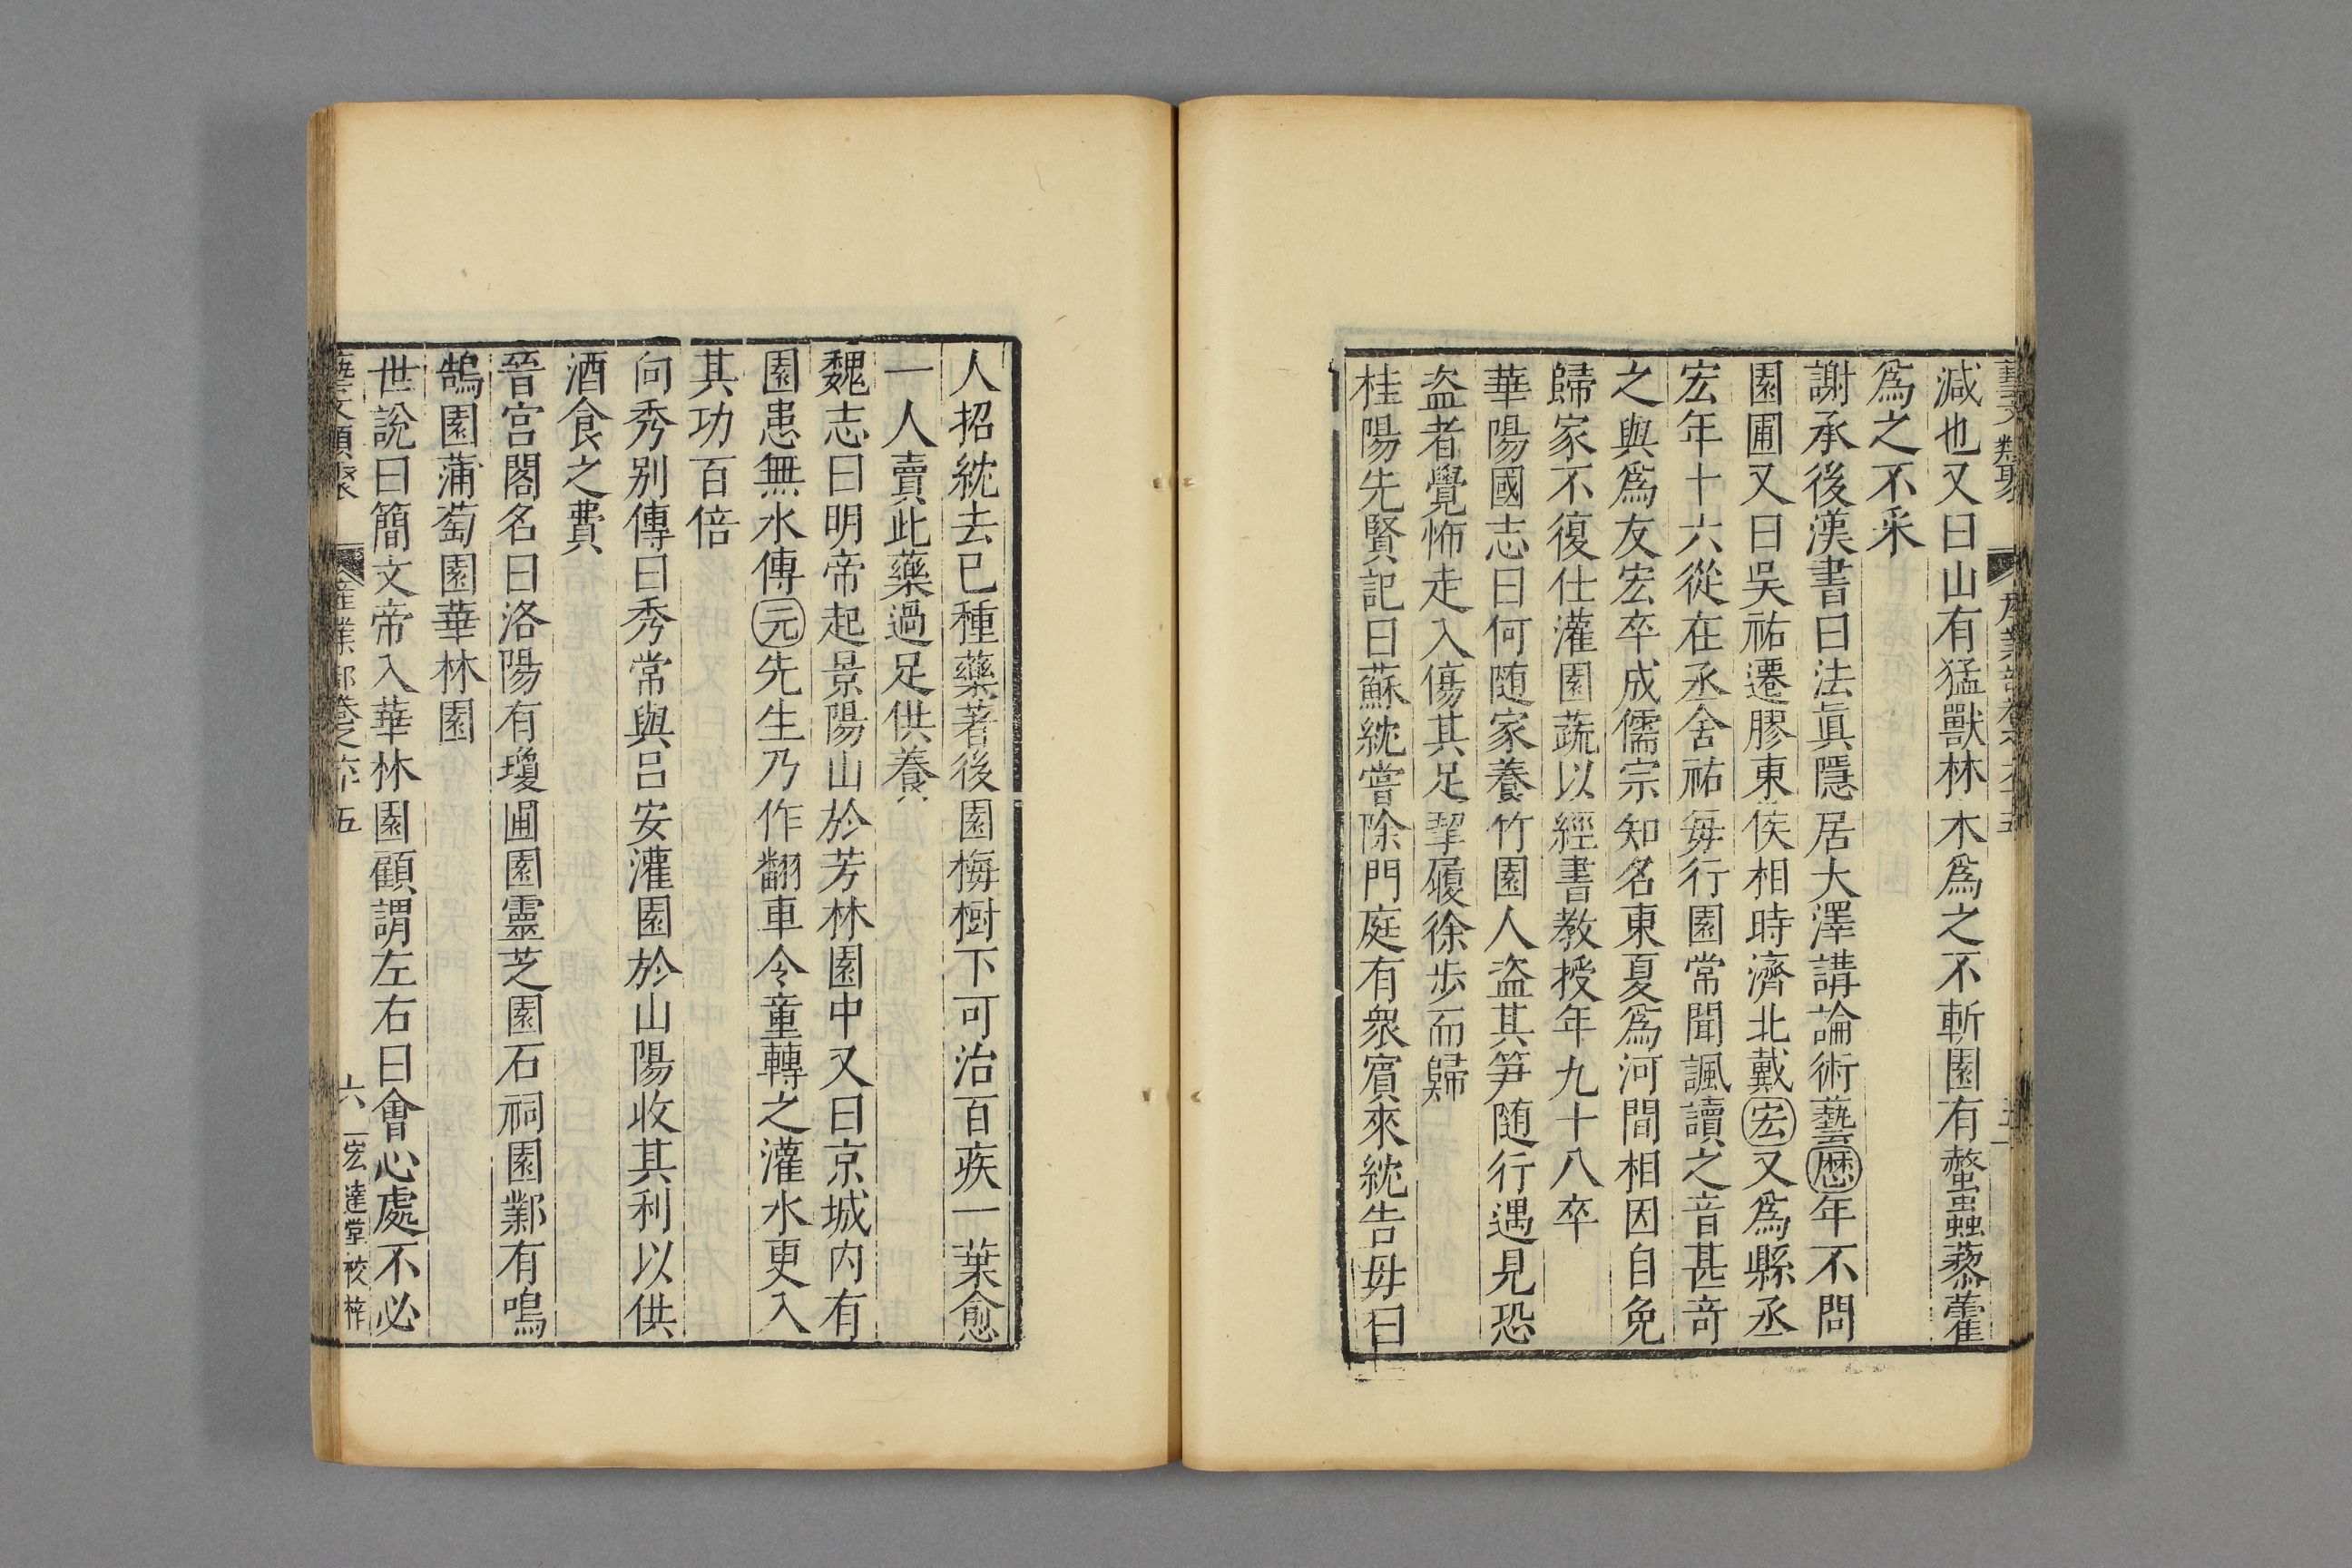 減也又曰山有猛獸林木爲之不斬園有螫蟲藜藿
爲之不采
謝承後漢書曰法眞隱居大澤講論術藝歴年不問
園圃又曰吳祐遷膠東侯相時濟北戴宏又爲縣丞
宏年十六從在丞舍祐每行園常聞諷讀之音甚奇
之與爲友宏卒成儒宗知名東夏爲河間相因自免
歸家不復仕灌園蔬以經書教授年九十八卒
華陽國志曰何随家養竹園人盗其笋随行遇見恐
盗者覺怖走入傷其足挈履徐歩而歸
桂陽先賢記曰蘇統嘗除門庭有衆賓來統告毋曰
人招統去已種藥著後園梅樹下可治百疾一葉愈
一人賣此藥過足供養
魏志曰明帝起景陽山於芳林園中又曰京城内有
園患無水傳元先生乃作翻車令童轉之灌水更入
其功百倍
向秀别傳曰秀常與呂安灌園於山陽收其利以供
酒食之費
晉宫閣名曰洛陽有瓊圃園靈芝園石祠園鄴有鳴
鵠園蒲萄園華林園
世說曰簡文帝入華林園顧謂左右曰會心處不必
藝文類聚 產業部卷之六十五 六 宏達堂校梓